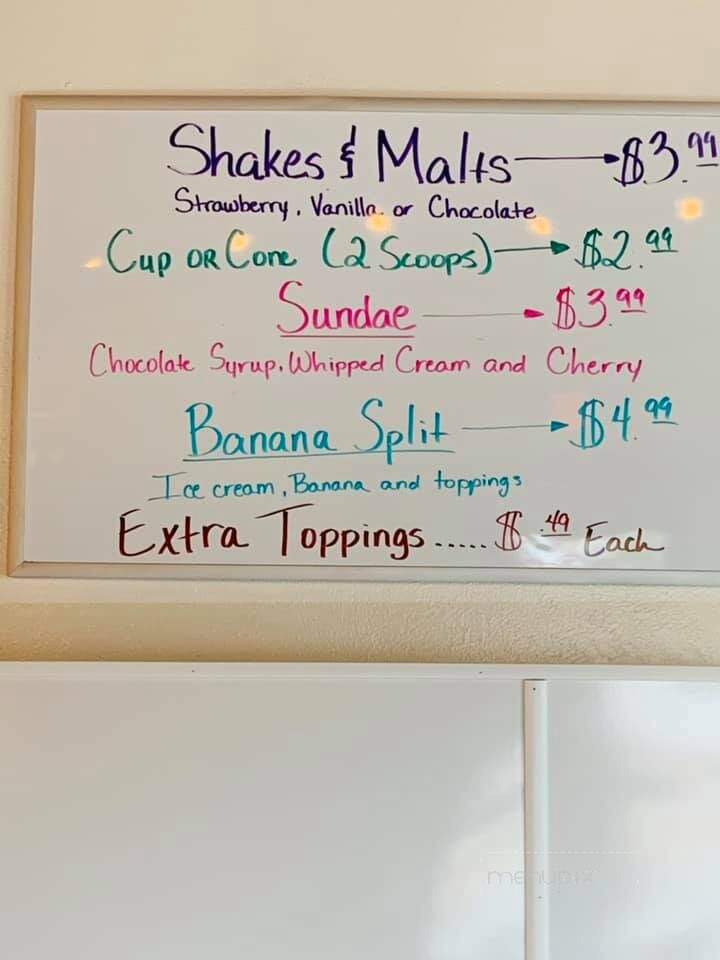 Shakes & Malts $3.99
Strawberry, Vanilla, or Chocolate
Cup OR Cone (2 Scoops) $2.99
Sundae $3.99
Chocolate Syrup, Whipped Cream and Cherry
Banana Split $4.99
Ice cream, Banana and toppings
Extra Toppings ..... $ .49 Each
menupix